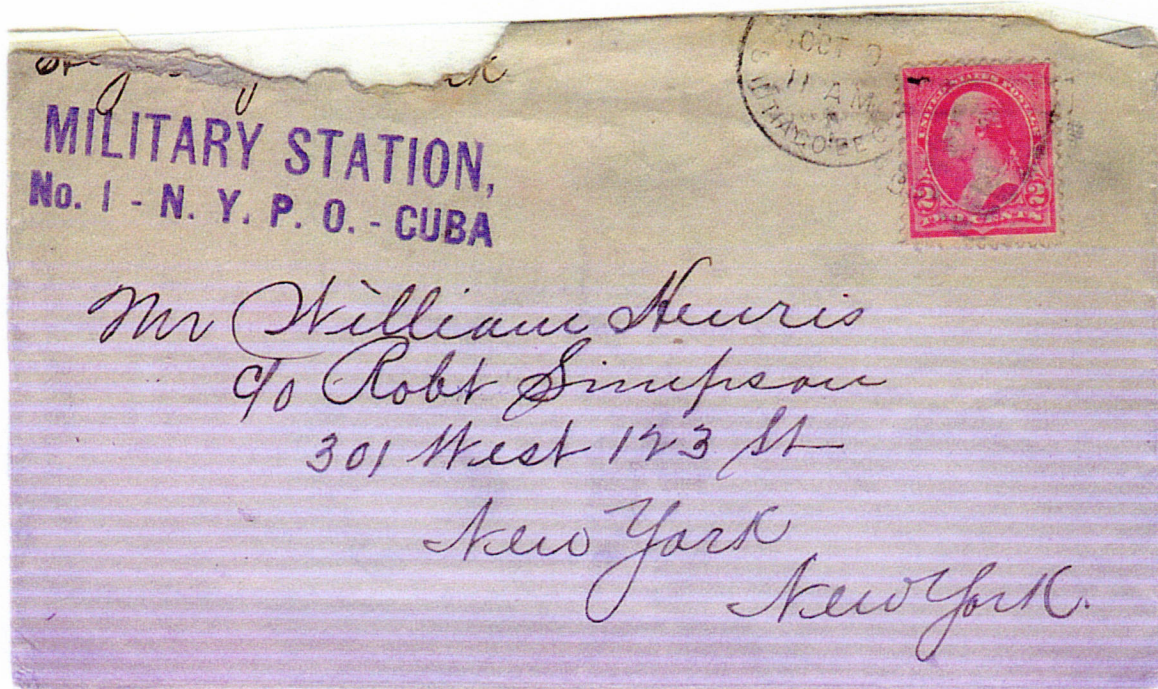 MILITARY STATION,
No. 1 - N. Y. P. O. - CUBA
OCT
11 AM
UNITED STATES POSTAGE
2 2
TWO CENTS
Mr William Henris
c/o Robt Simpson
301 West 123 St
New York
New York.